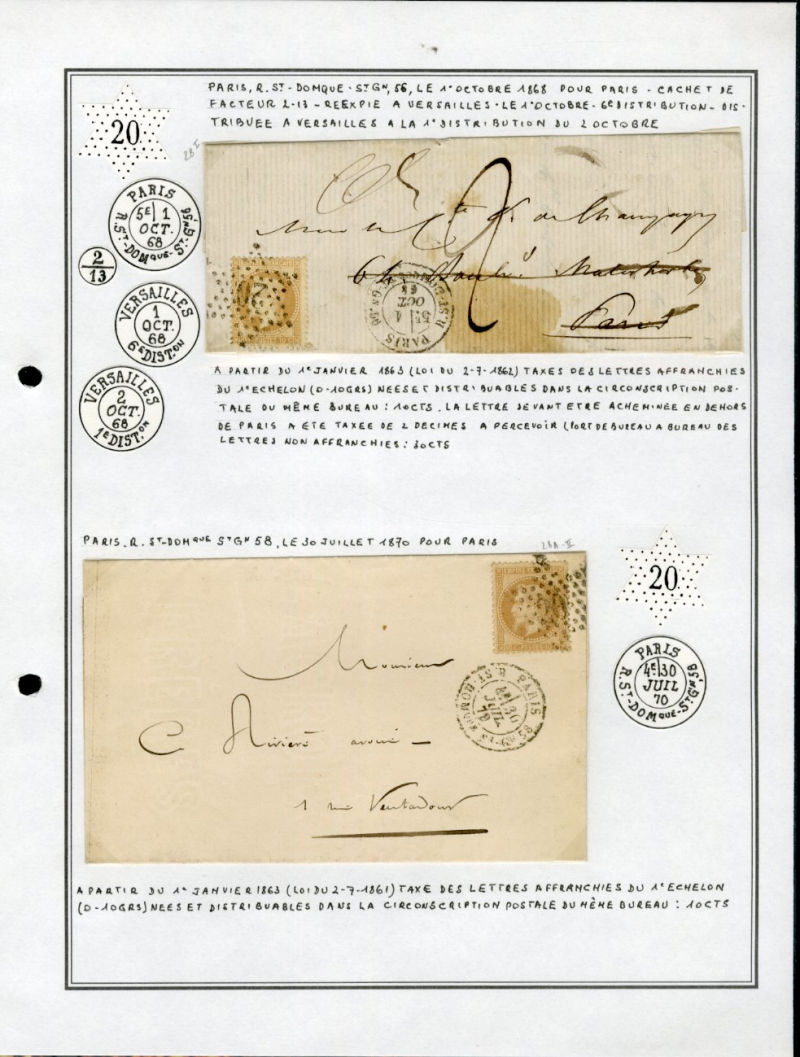 PARIS, R. ST-DOMQUE-STGN, 56, LE 1° OCTOBRE 1868 POUR PARIS - CACHET DE
FACTEUR 2-13 - REEXPIE A VERSAILLES - LE 1° OCTOBRE - 6E DISTRIBUTION - DIS-
TRIBUEE A VERSAILLES A LA 1° DISTRIBUTION DU 2 OCTOBRE
20
28 I
PARIS
5E 1
OCT.
68
R. ST-DOMQUE-ST-GN, 56
2
13
VERSAILLES
1
OCT.
68
6E DISTON
VERSAILLES
2
OCT.
68
1E DISTON
2
de Champagny
Paris
PARIS
5E 1
OCT.
68
A PARTIR DU 1E JANVIER 1863 (LOI DU 2-7-1862) TAXES DES LETTRES AFFRANCHIES
DU 1E ECHELON (0-10GRS) NEES ET DISTRIBUABLES DANS LA CIRCONSCRIPTION POS-
TALE DU MÊME BUREAU : 10CTS. LA LETTRE DEVANT ETRE ACHEMINEE EN DEHORS
DE PARIS A ETE TAXEE DE 2 DECIMES A PERCEVOIR (PORT DE BUREAU A BUREAU DES
LETTRES NON AFFRANCHIES : 30CTS
PARIS. R. ST-DOMQUE STGN 58, LE 30 JUILLET 1870 POUR PARIS
28A-II
20
EMPIRE
PARIS
4E 30
JUIL
70
R. ST-DOMQUE-STGN, 58
PARIS
30
JUIL
70
R. ST-DOMQUE ST-GN 58
Monsieur
Rivière avoué -
1 rue Ventadour
A PARTIR DU 1E JANVIER 1863 (LOI DU 2-7-1861) TAXE DES LETTRES AFFRANCHIES DU 1E ECHELON
(0-10GRS) NEES ET DISTRIBUABLES DANS LA CIRCONSCRIPTION POSTALE DU MÊME BUREAU : 10CTS